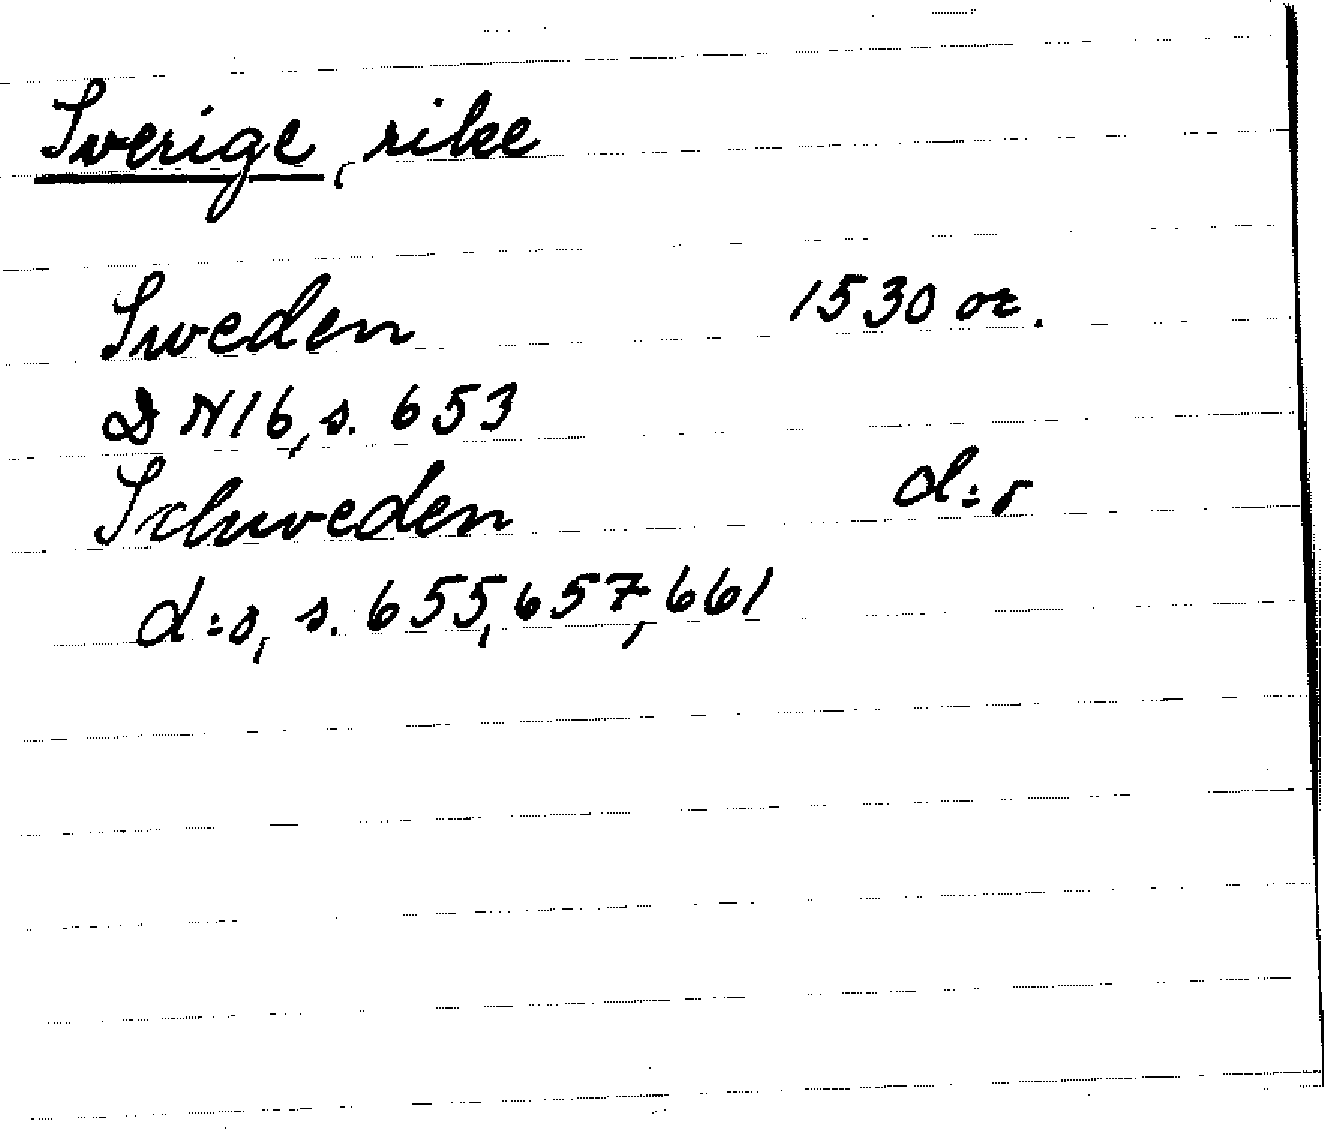 Sverige, rike
Sweden 1530 or.
DN16, s. 653
Schweden d:o
d:o, s. 655, 657, 661